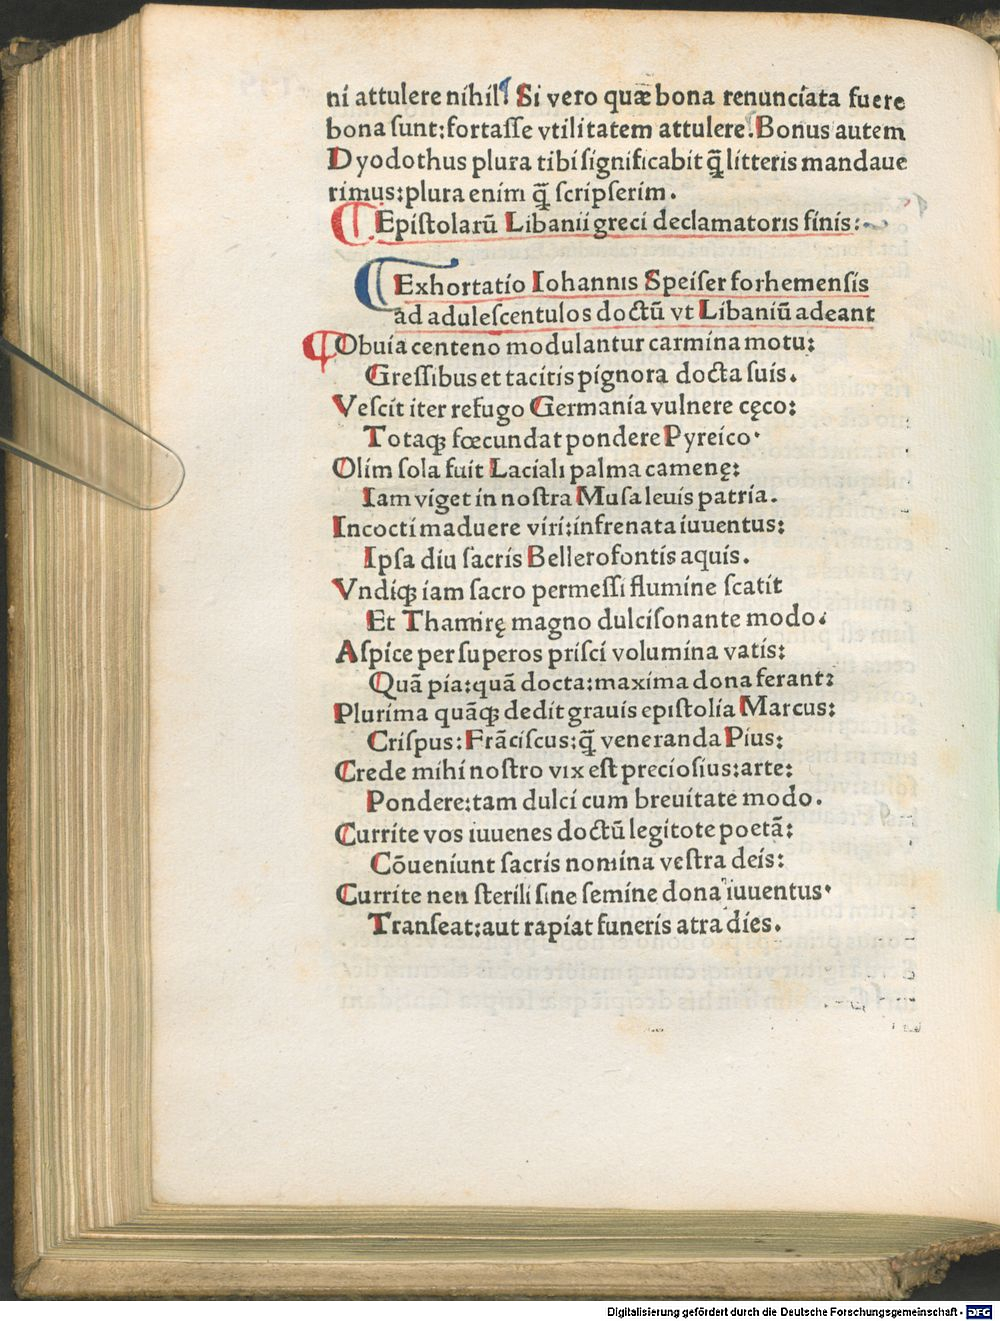 ni attulere nihil? Si vero quæ bona renunciata fuere
bona sunt:fortasse vtilitatem attulere. Bonus autem
Dyodothus plura tibi significabit q̃ litteris mandaue
rimus:plura enim q̃ scripserim.
Epistolarũ Libanii greci declamatoris finis:~
Exhortatio Iohannis Speiser forhemensis
ad adulescentulos doctũ vt Libaniũ adeant
Obuia centeno modulantur carmina motu:
Gressibus et tacitis pignora docta suis.
Vescit iter refugo Germania vulnere cęco:
Totaqꝫ fœcundat pondere Pyreico·
Olim sola fuit Laciali palma camenę:
Iam viget in nostra Musa leuis patria.
Incocti maduere viri:infrenata iuuentus:
Ipsa diu sacris Bellerofontis aquis.
Vndiqꝫ iam sacro permessi flumine scatit
Et Thamirę magno dulcisonante modo.
Aspice per superos prisci volumina vatis:
Quã pia:quã docta:maxima dona ferant:
Plurima quãqꝫ dedit grauis epistolia Marcus:
Crispus:Frãciscus:q̃ veneranda Pius:
Crede mihi nostro vix est preciosius:arte:
Pondere:tam dulci cum breuitate modo.
Currite vos iuuenes doctũ legitote poetã:
Cõueniunt sacris nomina vestra deis:
Currite nen sterili sine semine dona iuuentus·
Transeat:aut rapiat funeris atra dies.
Digitalisierung gefördert durch die Deutsche Forschungsgemeinschaft - DFG